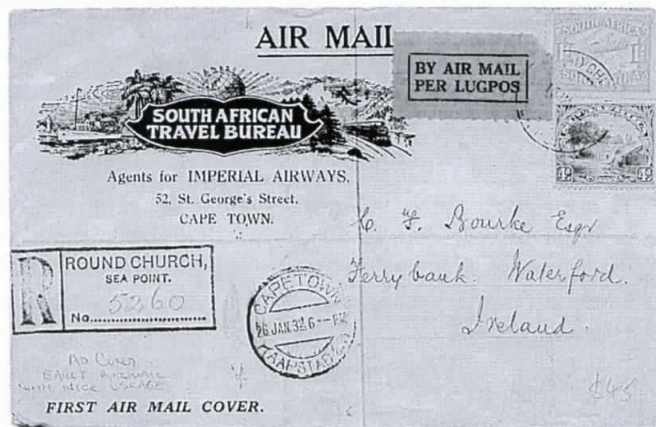 AIR MAIL
BY AIR MAIL
PER LUGPOS
SOUTH AFRICA
1/-
SOUTH AFRICAN
TRAVEL BUREAU
Agents for IMPERIAL AIRWAYS,
52, St. George's Street,
CAPE TOWN.
4D
4D
C. F. Bourke Esqr
Ferrybank. Waterford.
Ireland.
R
ROUND CHURCH,
SEA POINT.
No. 5260
CAPETOWN
26 JAN 32 6 -- PM
KAAPSTAD
AD COVER
EARLY AIRMAIL
WITH NICE USAGE
$45
FIRST AIR MAIL COVER.